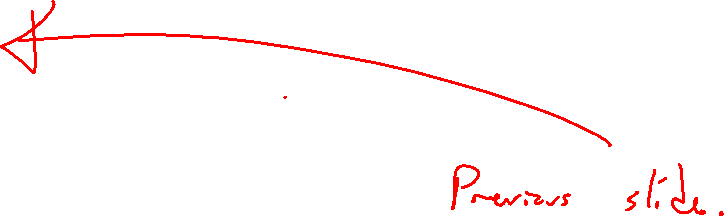 Previous slide.